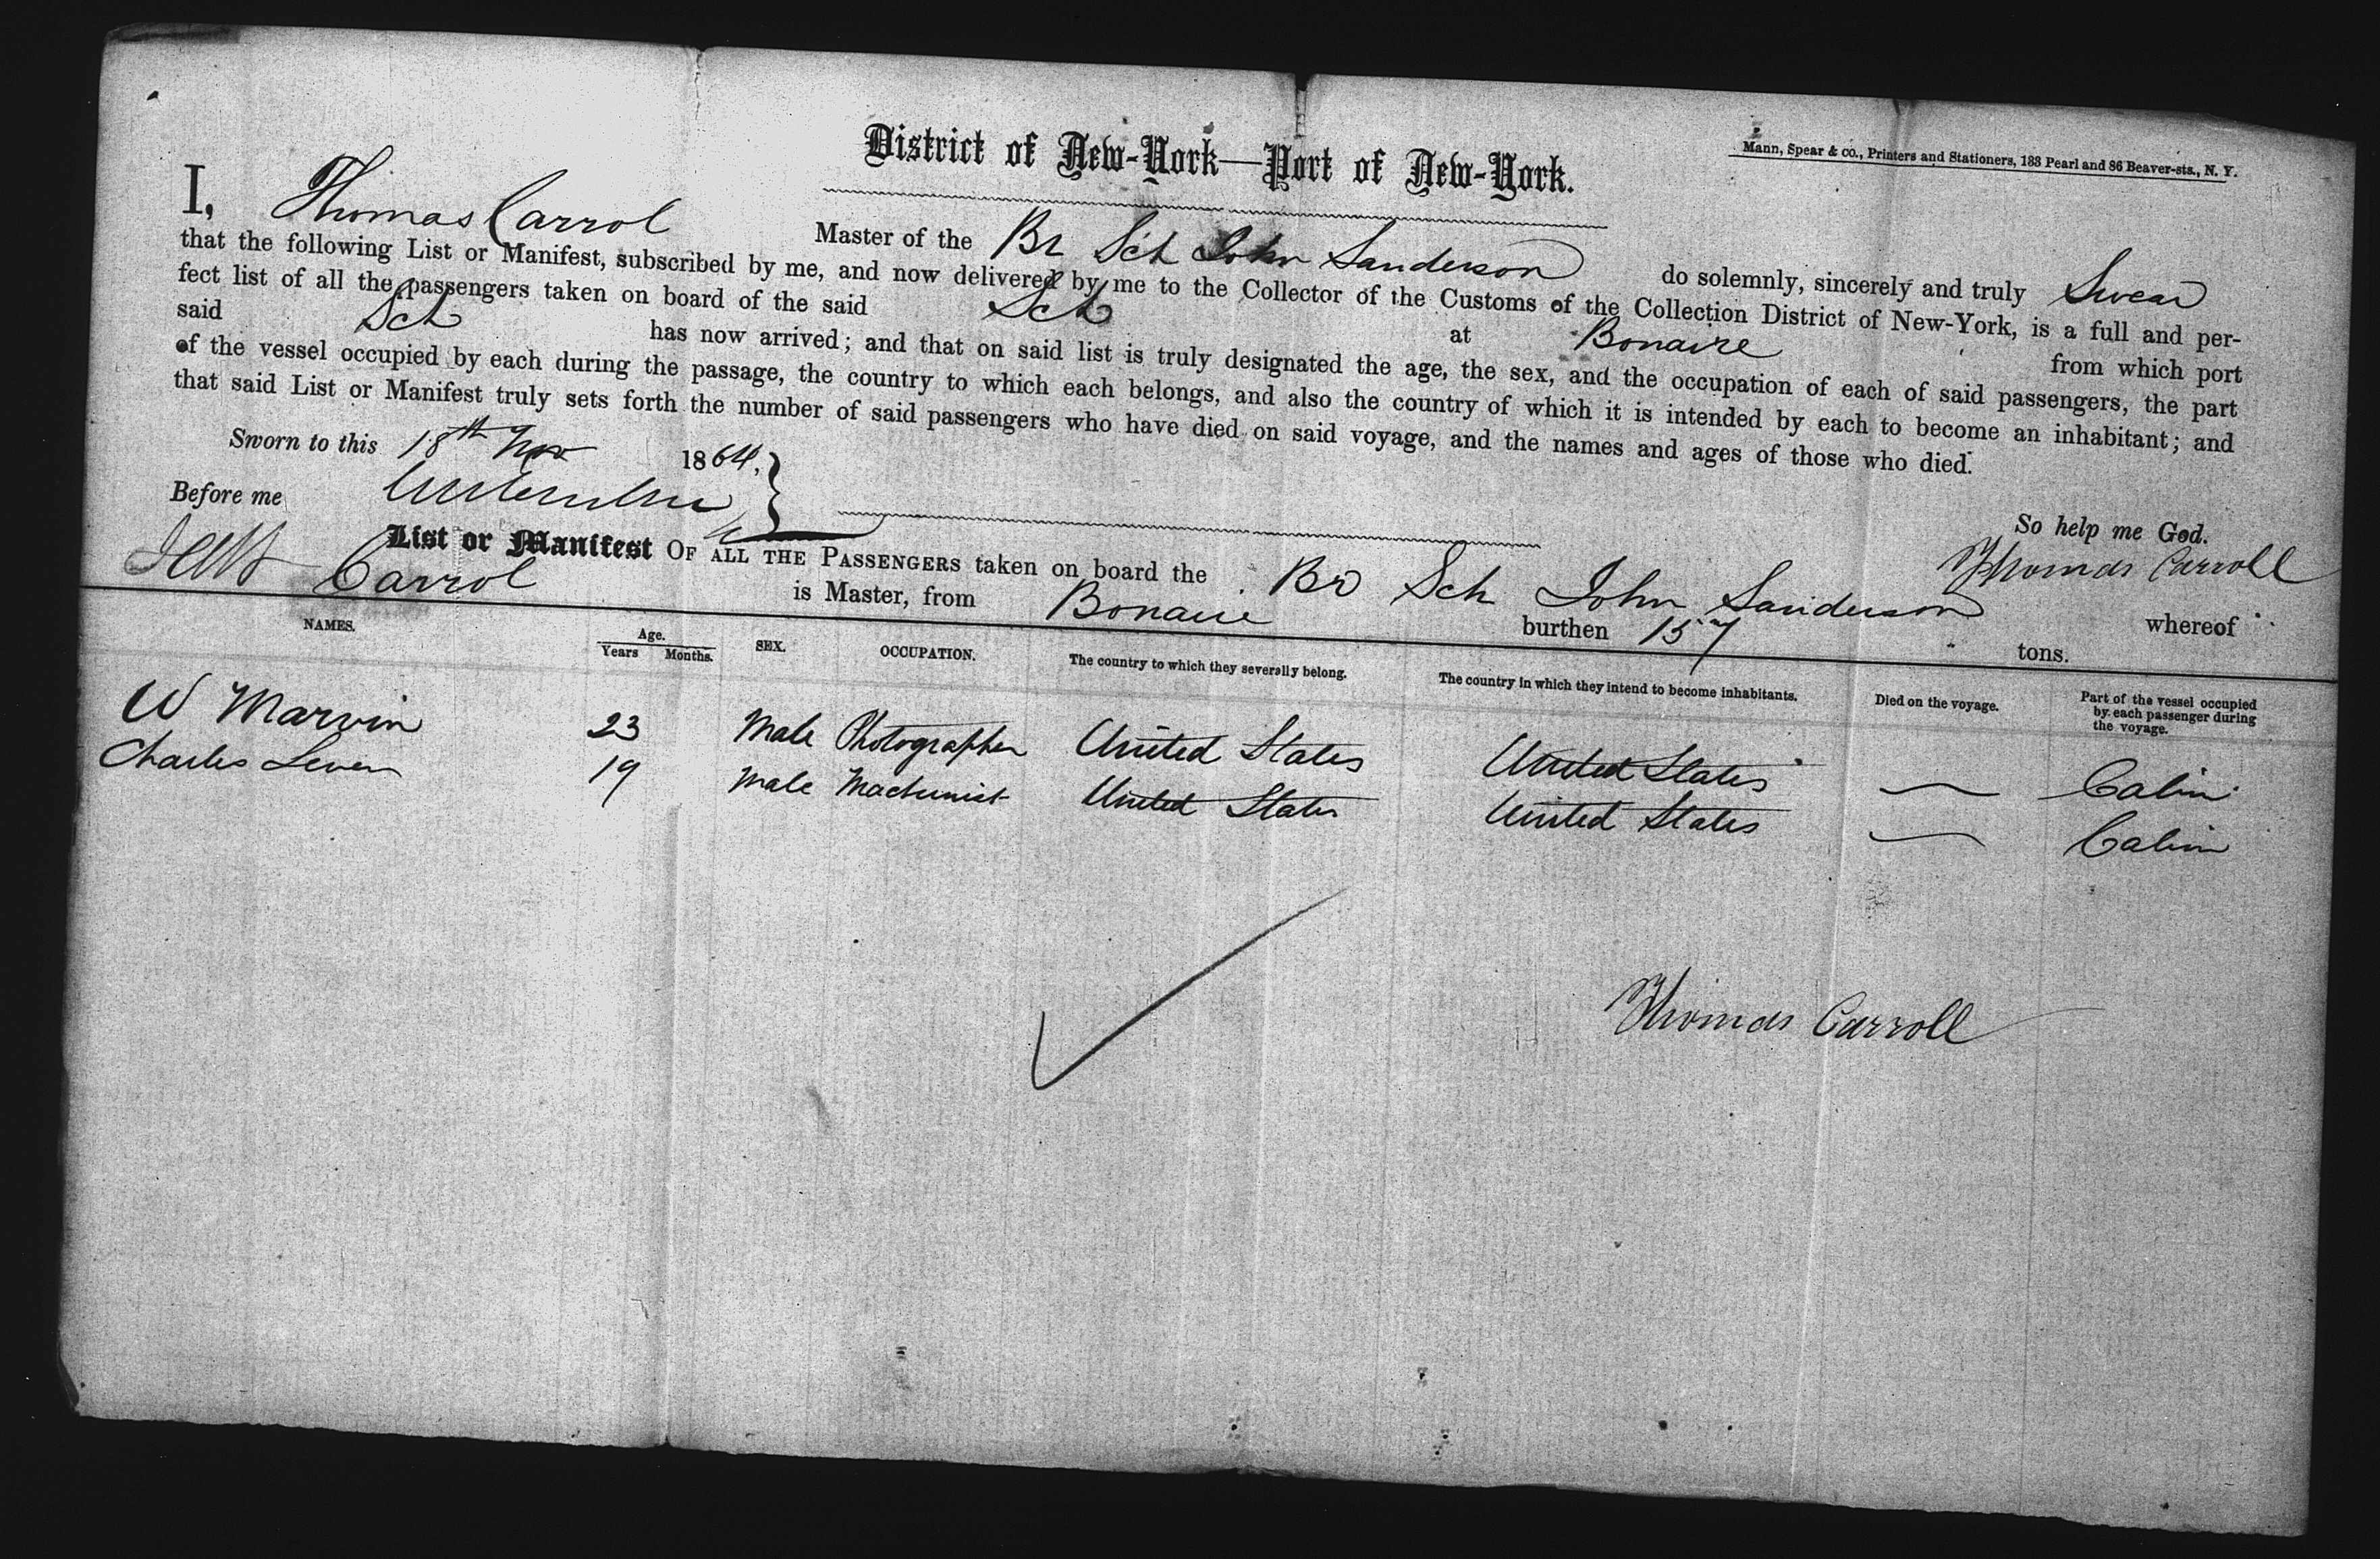 District of New-York—Port of New-York.
Mann, Spear & co., Printers and Stationers, 183 Pearl and 86 Beaver-sts., N. Y.
I, Thomas Carrol Master of the Br Sch John Sanderson do solemnly, sincerely and truly Swear
that the following List or Manifest, subscribed by me, and now delivered by me to the Collector of the Customs of the Collection District of New-York, is a full and per-
fect list of all the passengers taken on board of the said Sch at Bonaire from which port
said Sch has now arrived; and that on said list is truly designated the age, the sex, and the occupation of each of said passengers, the part
of the vessel occupied by each during the passage, the country to which each belongs, and also the country of which it is intended by each to become an inhabitant; and
that said List or Manifest truly sets forth the number of said passengers who have died on said voyage, and the names and ages of those who died.
Sworn to this 18th Nov 1864,
So help me God.
Before me
Thomas Carroll
List or Manifest OF ALL THE PASSENGERS taken on board the Br Sch John Sanderson whereof
Carrol is Master, from Bonaire burthen 157 tons.
NAMES. Age. Years Months. SEX. OCCUPATION. The country to which they severally belong. The country in which they intend to become inhabitants. Died on the voyage. Part of the vessel occupied by each passenger during the voyage.
W Marvin 23 Male Photographer United States United States — Cabin
Charles Leven 19 Male Machinist United States United States — Cabin
Thomas Carroll